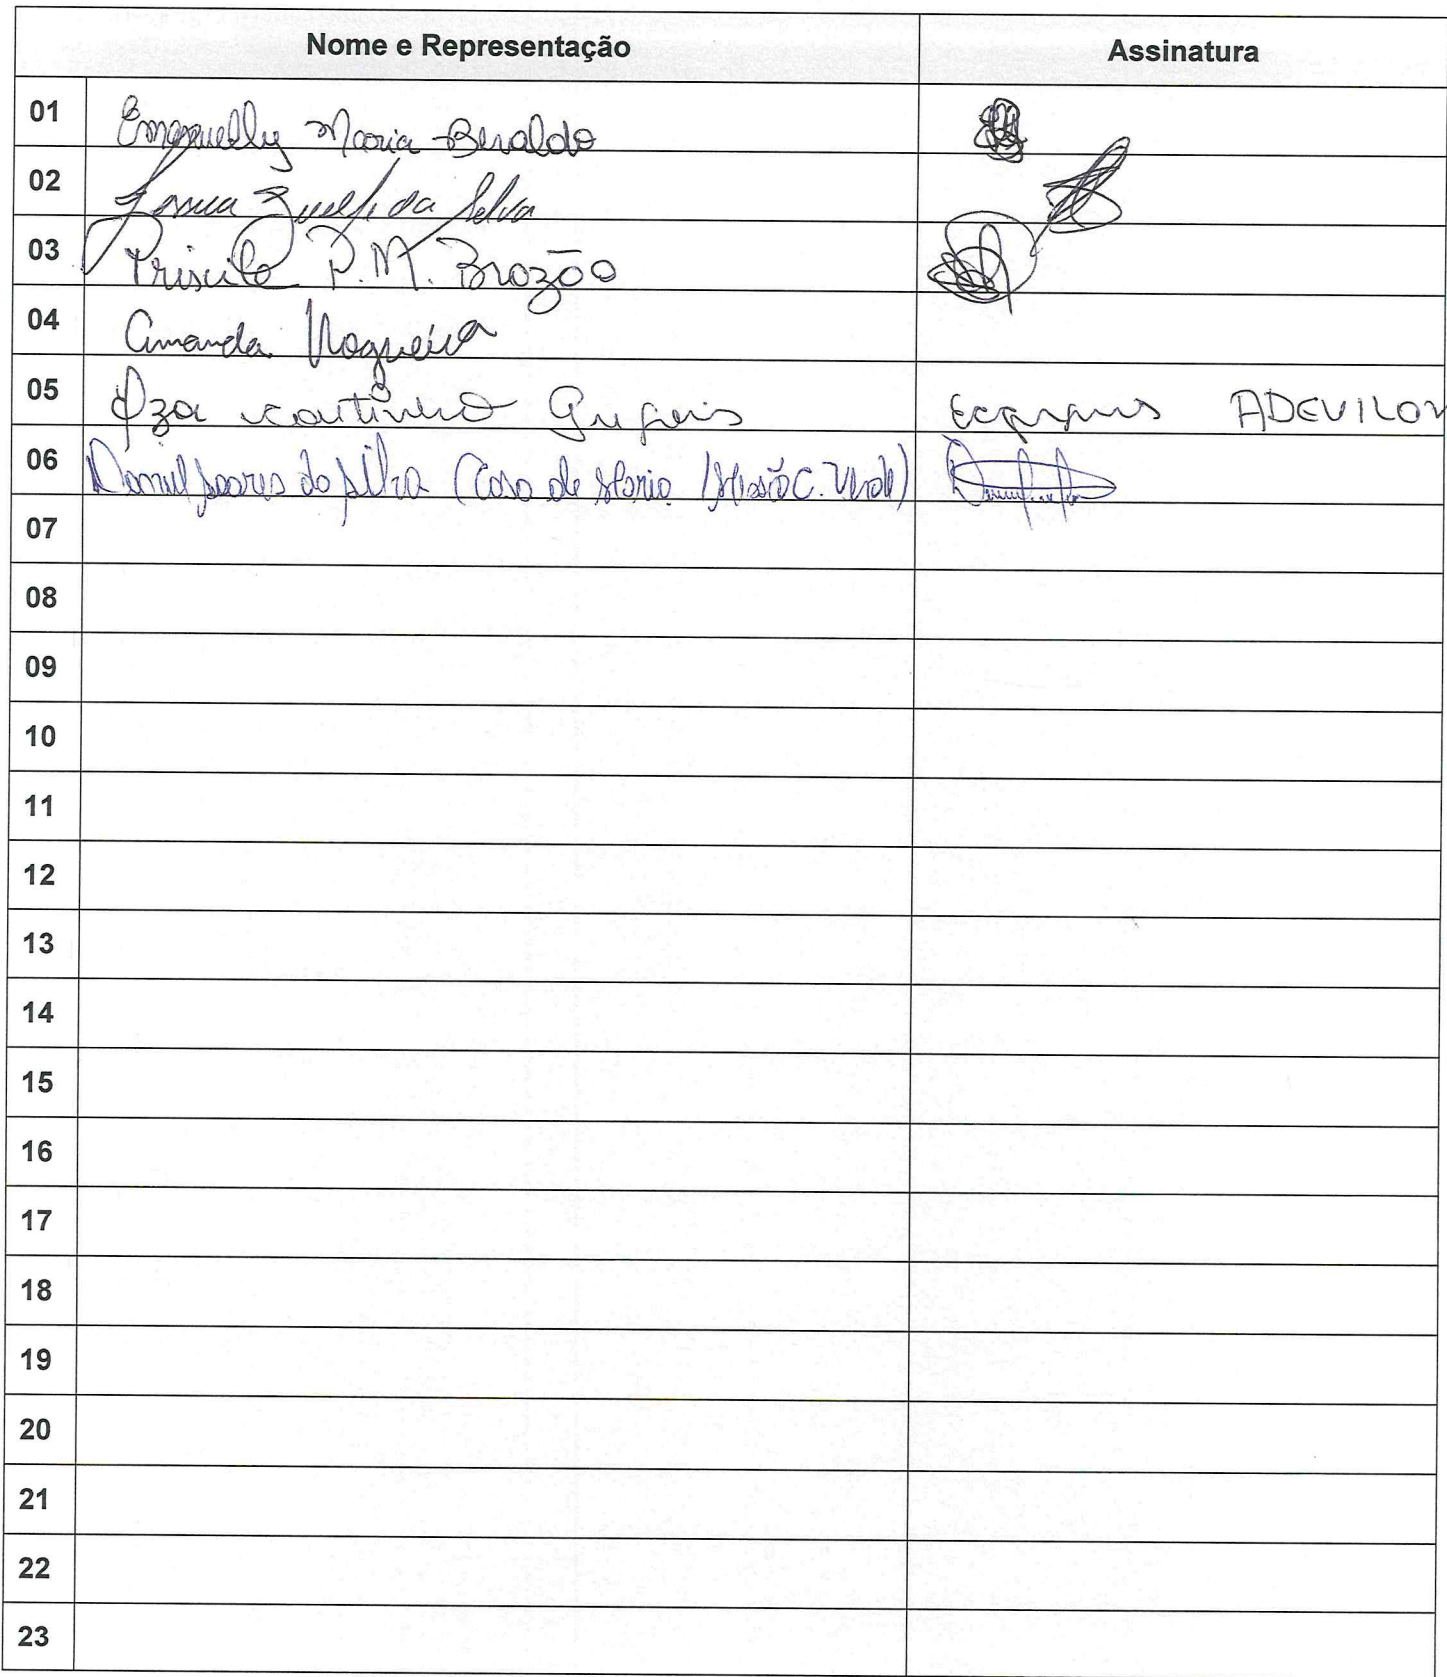 Nome e Representação Assinatura
01 Emanuelly Maria Beraldo
02 da Silva
03 Priscila P. M. Brozão
04 Amanda Nogueira
05 Iza Coutinho ADEVILON
06 Daniel Soares da Silva (Casa de Maria / Missão C. Verde)
07
08
09
10
11
12
13
14
15
16
17
18
19
20
21
22
23